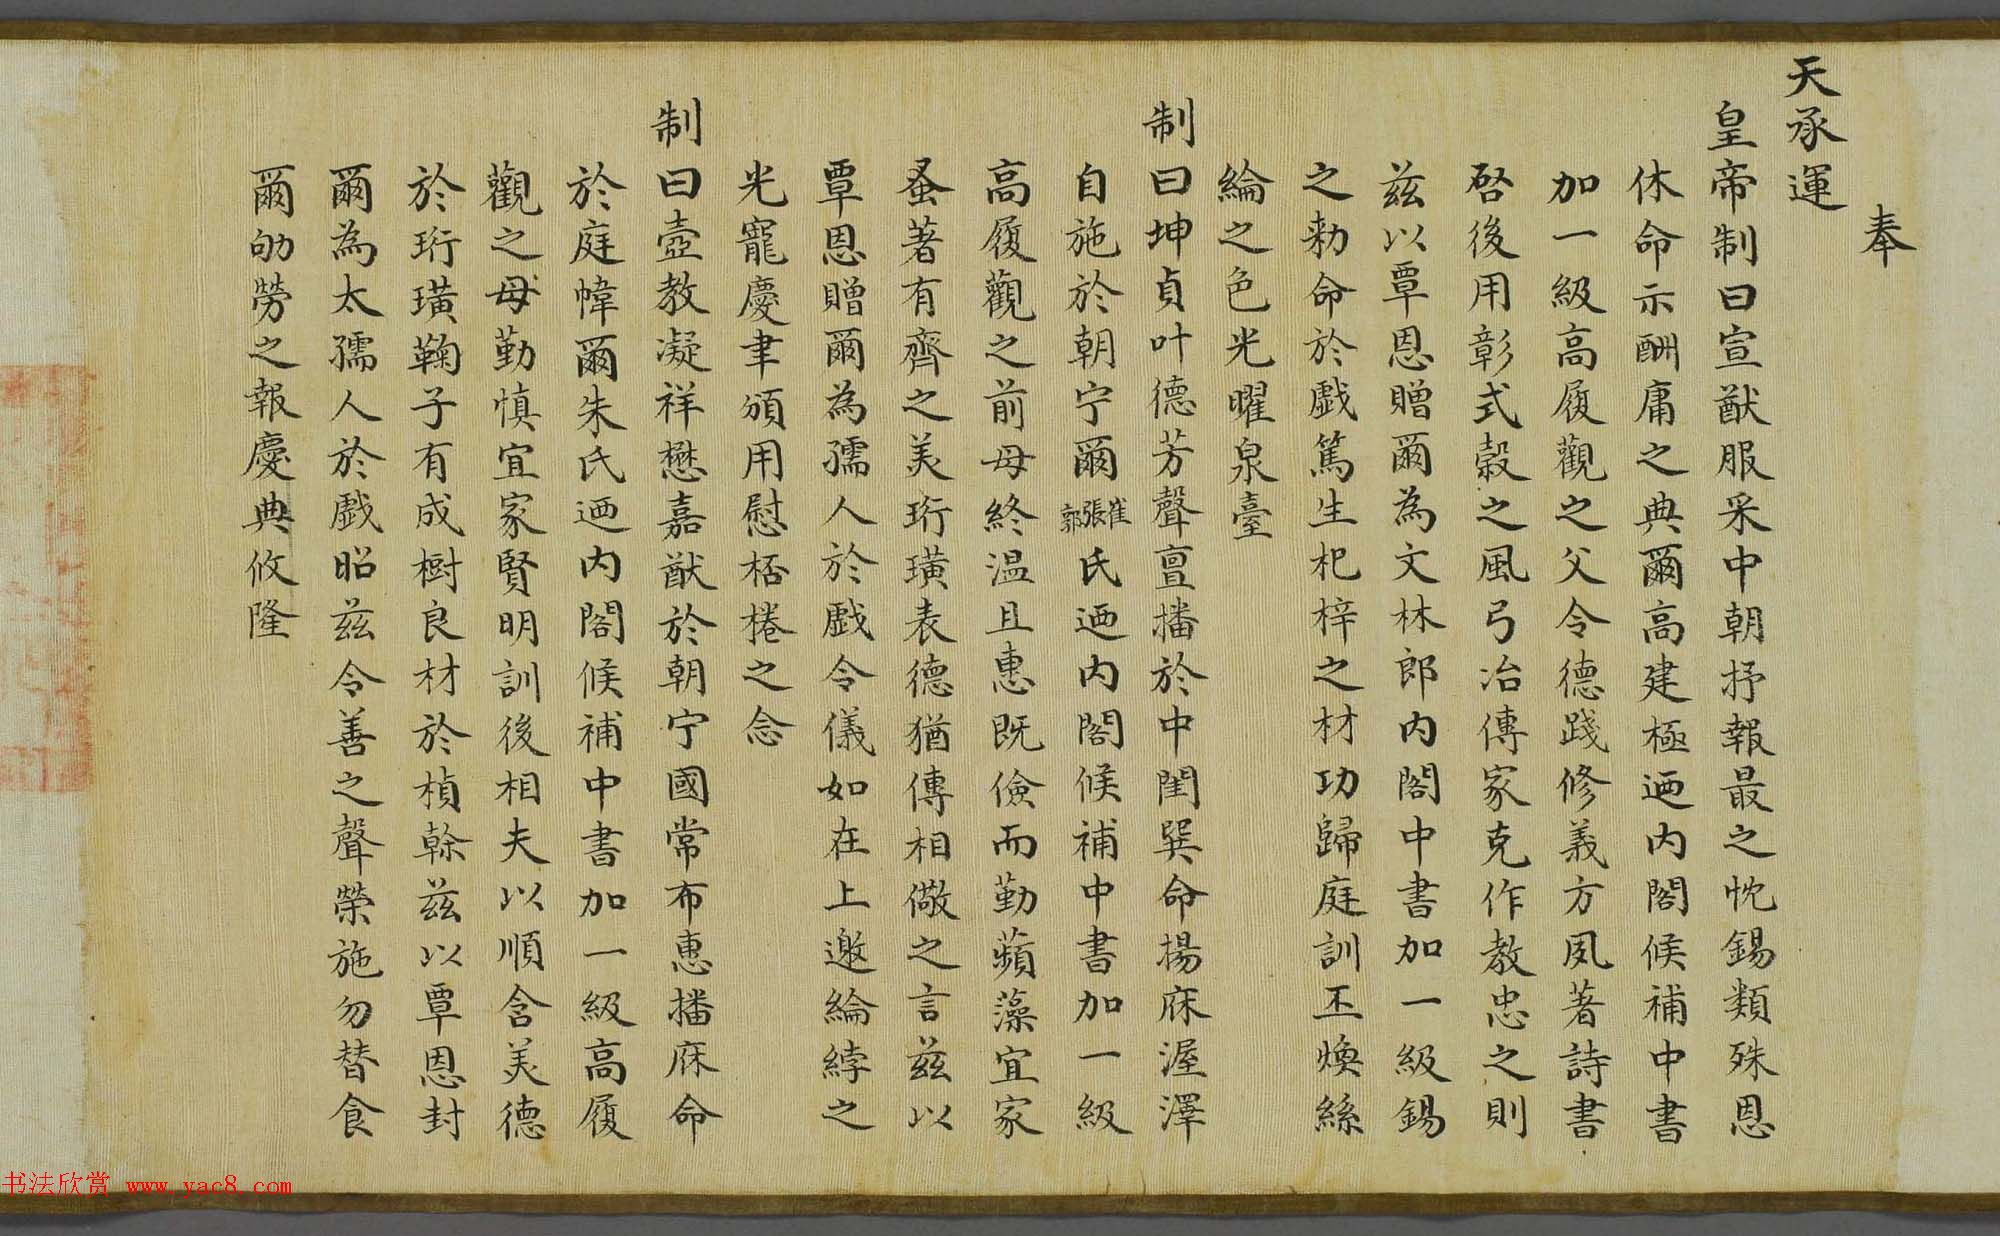 奉
天承運
皇帝制曰宣猷服采中朝抒報最之忱錫類殊恩
休命示酬庸之典爾高建極迺内閣候補中書
加一級高履觀之父令德踐修義方夙著詩書
啓後用彰式穀之風弓冶傳家克作教忠之則
茲以覃恩贈爾為文林郎内閣中書加一級錫
之勅命於戲篤生杞梓之材功歸庭訓丕煥絲
綸之色光曜泉臺
制曰坤貞叶德芳聲亶播於中閨巽命揚庥渥澤
自施於朝宁爾崔張郭氏迺内閣候補中書加一級
高履觀之前母終温且惠既儉而勤蘋藻宜家
蚤著有齊之美珩璜表德猶傳相儆之言茲以
覃恩贈爾為孺人於戲令儀如在上邀綸綍之
光寵慶聿頒用慰桮棬之念
制曰壼教凝祥懋嘉猷於朝宁國常布惠播庥命
於庭幃爾朱氏迺内閣候補中書加一級高履
觀之母勤慎宜家賢明訓後相夫以順含美德
於珩璜鞠子有成樹良材於楨榦茲以覃恩封
爾為太孺人於戲昭茲令善之聲榮施勿替食
爾劬勞之報慶典攸隆
书法欣赏 www.yac8.com